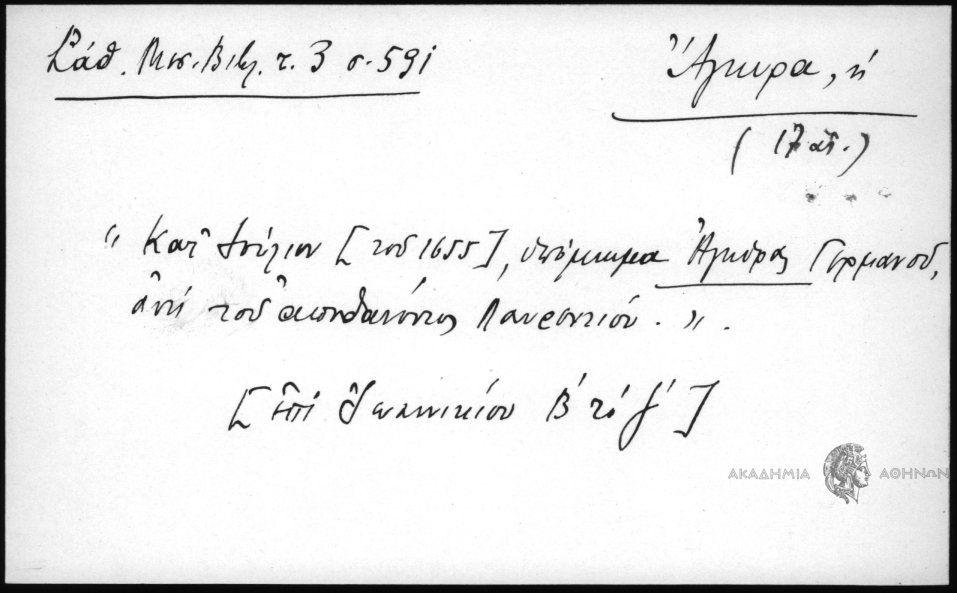 Σάθ. Μεσ. Βιβλ. τ. 3 σ. 591
Ἄγκυρα, ἡ
(17 αἰ.)
"Κατ' Ἰούλιον [τοῦ 1655], ὑπόμνημα Ἀγκύρας Γερμανοῦ,
ἀντὶ τοῦ ἀποθανόντος Λαυρεντίου."
[ἐπὶ Ἰωαννικίου Β' τό γ']
ΑΚΑΔΗΜΙΑ ΑΘΗΝΩΝ